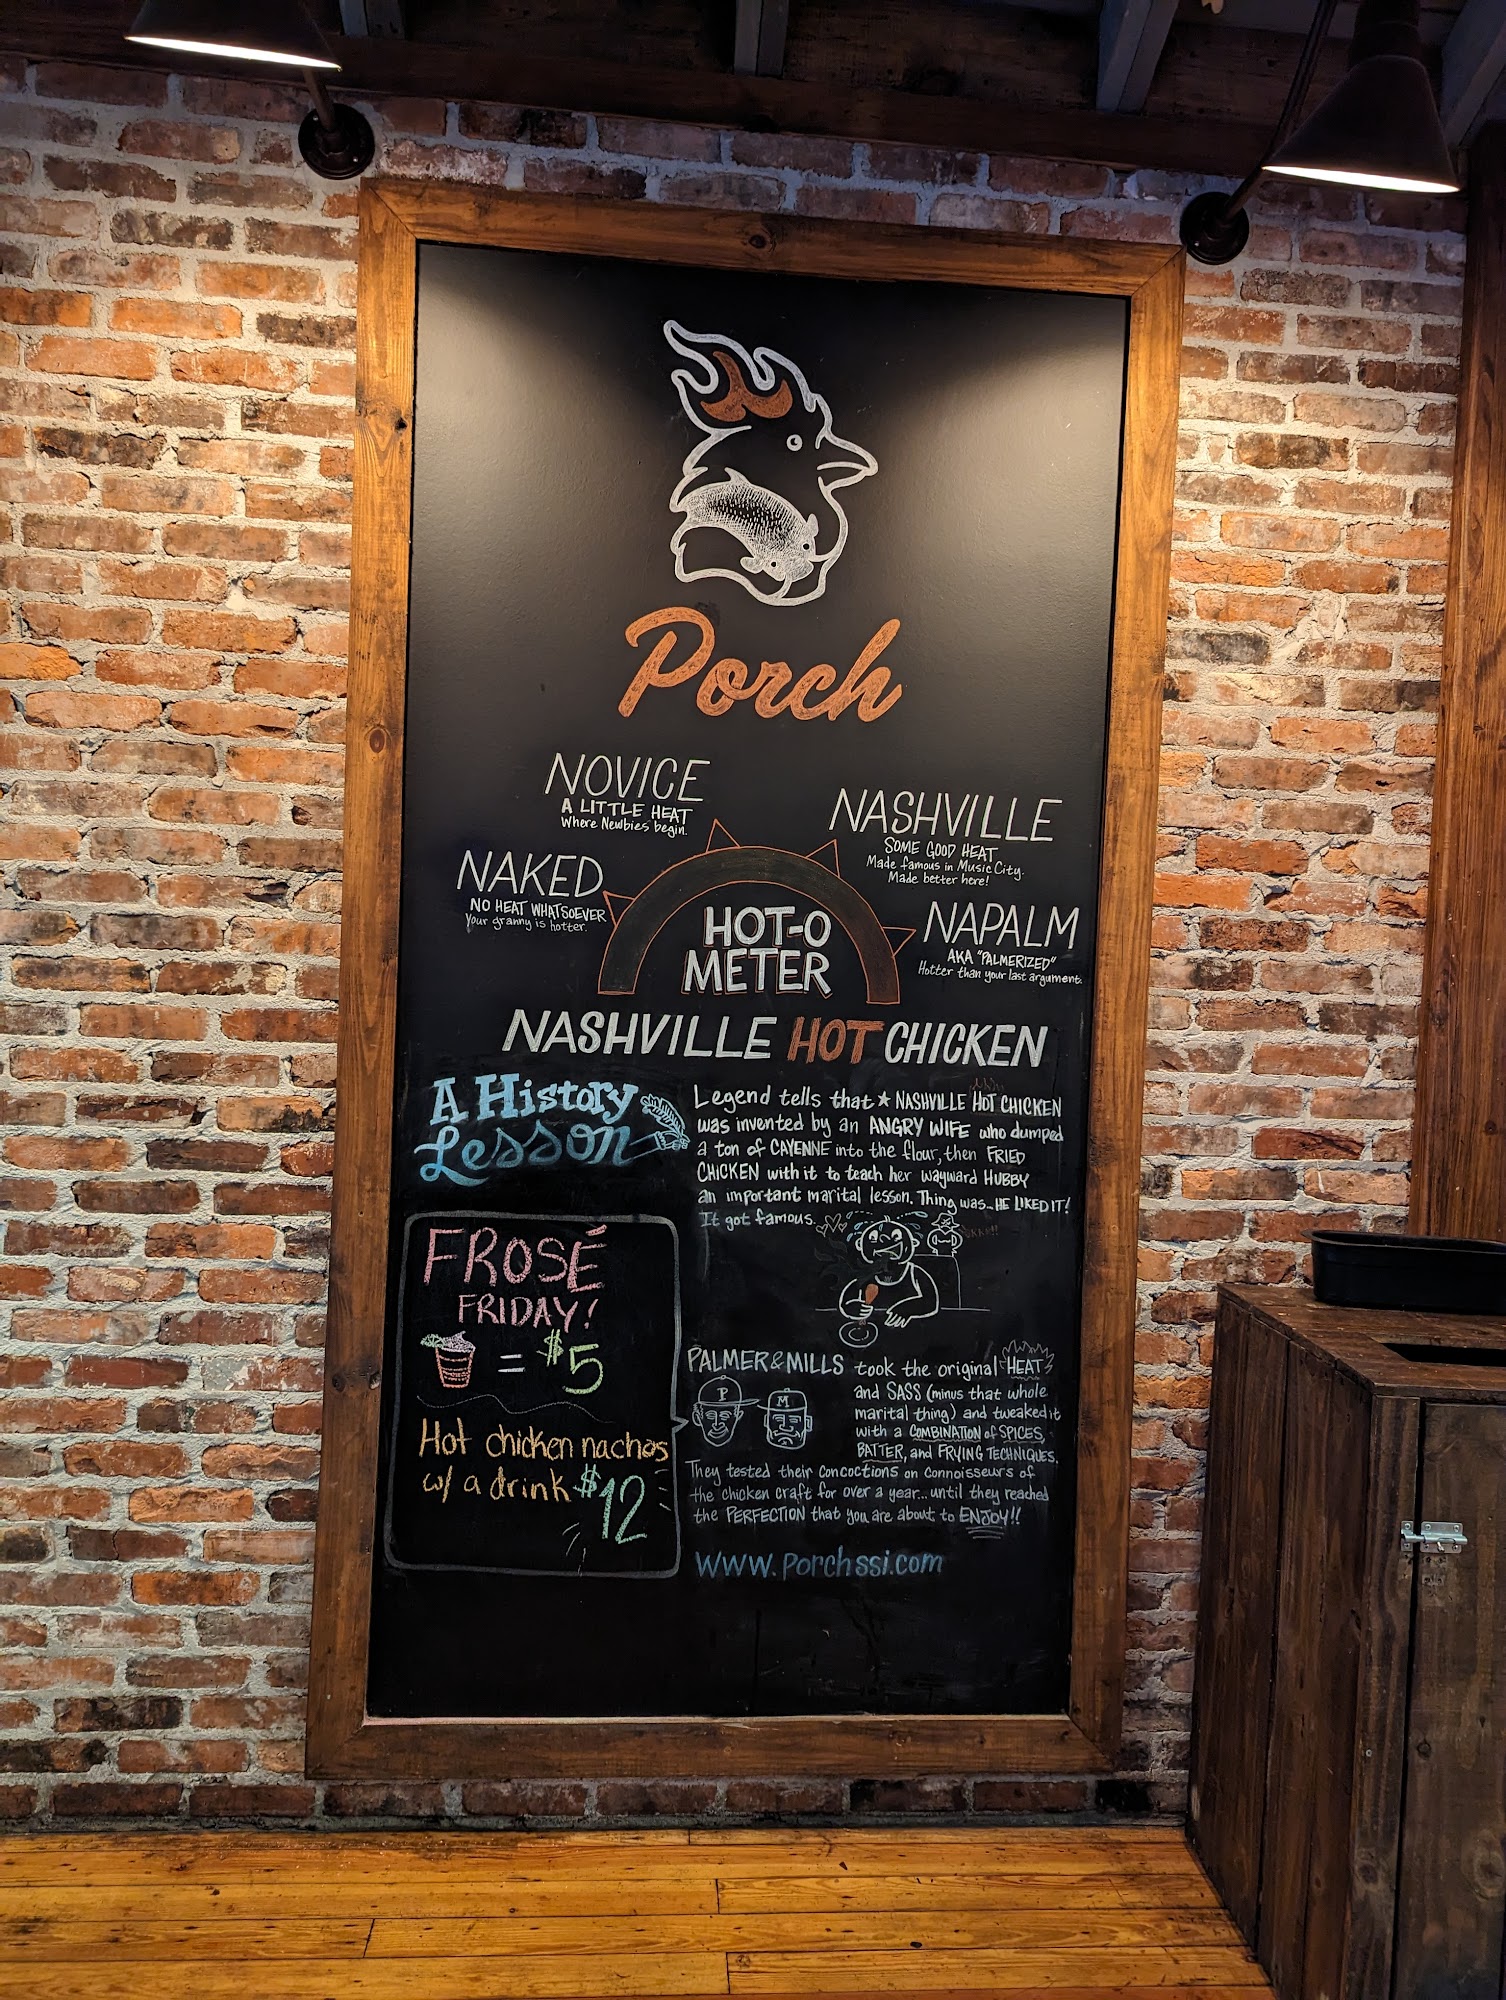 Porch
NOVICE
A LITTLE HEAT
Where Newbies begin.
NASHVILLE
SOME GOOD HEAT
Made famous in Music City.
Made better here!
NAKED
NO HEAT WHATSOEVER
Your granny is hotter.
NAPALM
AKA "PALMERIZED"
Hotter than your last argument.
HOT-O
METER
NASHVILLE HOT CHICKEN
A History
Lesson
Legend tells that ★ NASHVILLE HOT CHICKEN
was invented by an ANGRY WIFE who dumped
a ton of CAYENNE into the flour, then FRIED
CHICKEN with it to teach her wayward HUBBY
an important marital lesson. Thing was... HE LIKED IT!
It got famous.
FROSÉ
FRIDAY!
= $5
Hot chicken nachos
w/ a drink $12
PALMER & MILLS took the original HEAT
and SASS (minus that whole
marital thing) and tweaked it
with a COMBINATION of SPICES,
BATTER, and FRYING TECHNIQUES.
P
M
They tested their concoctions on connoisseurs of
the chicken craft for over a year... until they reached
the PERFECTION that you are about to ENJOY!!
www.porchssi.com